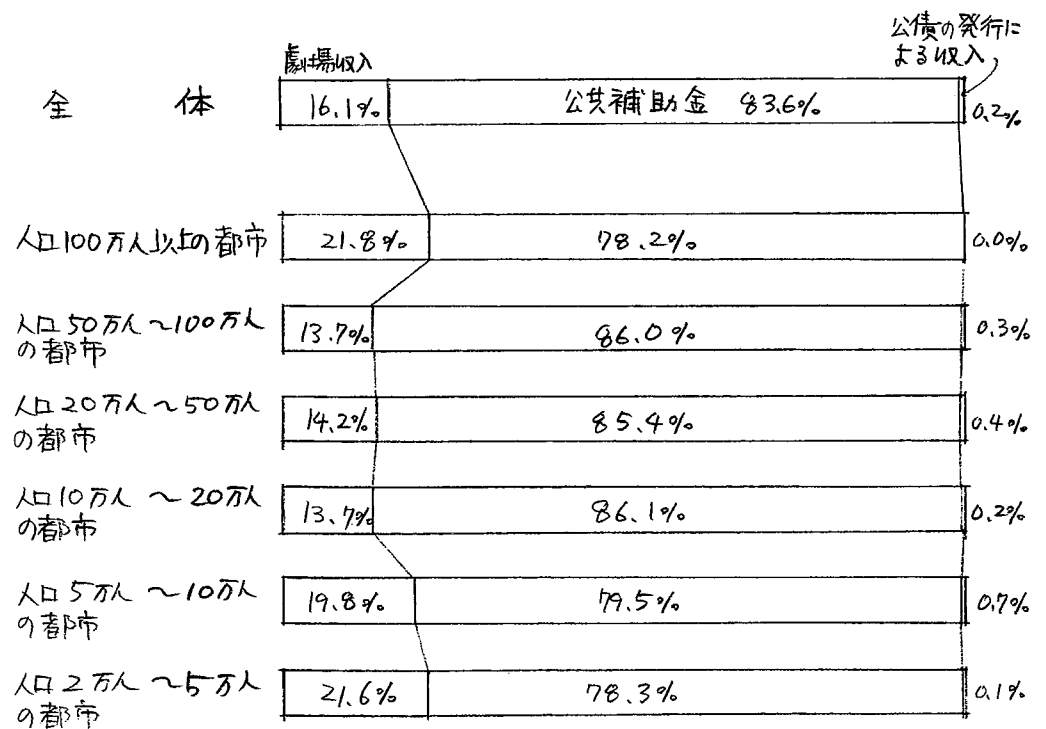 公債の発行に
よる収入
劇場収入
全 体 16.1% 公共補助金 83.6% 0.2%
人口100万人以上の都市 21.8% 78.2% 0.0%
人口50万人〜100万人
の都市
13.7% 86.0% 0.3%
人口20万人〜50万人
の都市
14.2% 85.4% 0.4%
人口10万人 〜20万人
の都市
13.7% 86.1% 0.2%
人口5万人 〜10万人
の都市
19.8% 79.5% 0.7%
人口2万人 〜5万人
の都市
21.6% 78.3% 0.1%